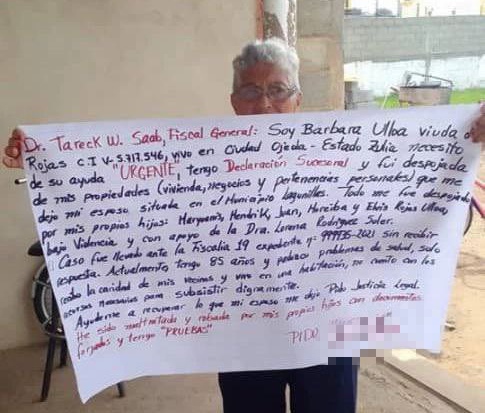 Dr. Tareck W. Saab, Fiscal General: Soy Barbara Ulloa viuda d
Rojas C I V-5.717.546, vivo en Ciudad Ojeda - Estado Zulia necesito
de su ayuda "URGENTE, tengo Declaración Sucesoral y fui despojada
de mis propiedades (Vivienda, negocios y pertenencias personales) que me
dejo mi esposo situada en el Municipio Lagunillas. Todo me fue despojado
por mis propios hijos: Hendrik, Juan, y Elvis Rojas Ulloa,
bajo Violencia y con apoyo de la Dra. Lorena Rodriguez Soler.
Caso fue llevado ante la Fiscalia 19 expediente n: -2021 sin recibir
respuesta. Actualmente, tengo 85 años y padezco problemas de salud, solo
recibo la caridad de mis vecinos y vivo en una habitación, no cuento con los
recursos necesarios para subsistir dignamente.
Ayudenme a recuperar lo que mi esposo me dejo Pido Justicia Legal.
He sido maltratada y robada por mis propios hijos con documentos
forjados y tengo "PRUEBAS"
PIDO